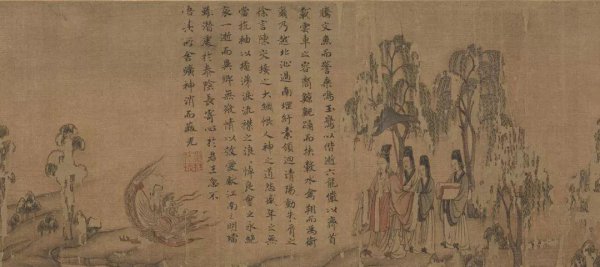 騰文魚而警乘鳴玉鸞以偕逝六龍儼以齊首
載雲車之容裔鯨鯢踊而夾轂水禽翔而為衛
乃越北沚過南紆素領迴清陽動朱脣之
徐言陳交接之大綱恨人神之道殊盛年之莫
當抗袖以掩涕流襟之浪浪悼良會之永絕
哀一逝而異鄉無微情以效愛獻江南之明璫
雖潛處於泰陰長寄心於君王忽不
悟其所舍悵神消而蔽光